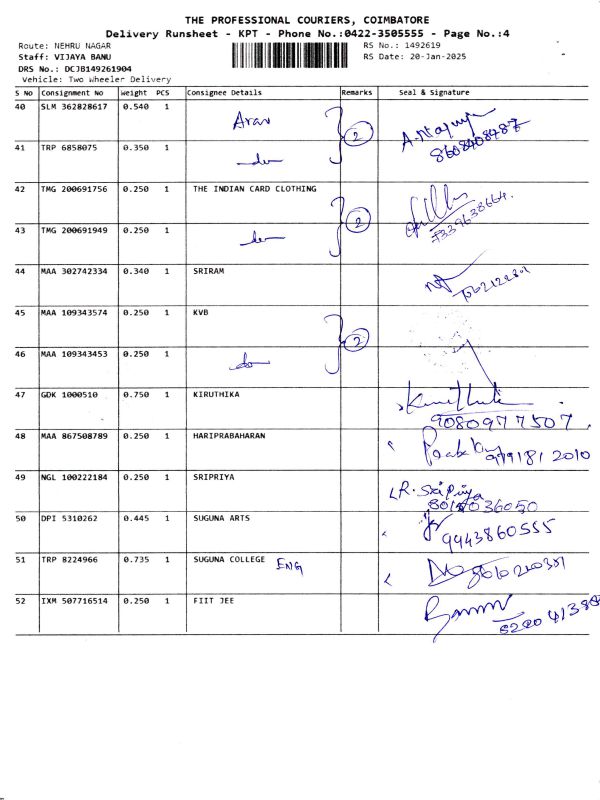 THE PROFESSIONAL COURIERS, COIMBATORE
Delivery Runsheet - KPT - Phone No.:0422-3505555 - Page No.:4
Route: NEHRU NAGAR RS No.: 1492619
Staff: VIJAYA BANU RS Date: 20-Jan-2025
DRS No.: DCJB149261904
Vehicle: Two Wheeler Delivery
S No Consignment No Weight PCS Consignee Details Remarks Seal & Signature
40 SLM 362828617 0.540 1 Arav 2
8608408487
41 TRP 6858075 0.350 1 do
42 TMG 200691756 0.250 1 THE INDIAN CARD CLOTHING 2
7339638664.
43 TMG 200691949 0.250 1 do
44 MAA 302742334 0.340 1 SRIRAM
45 MAA 109343574 0.250 1 KVB 2
46 MAA 109343453 0.250 1 do
47 GDK 1000510 0.750 1 KIRUTHIKA
9080977507.
48 MAA 867508789 0.250 1 HARIPRABAHARAN
49 NGL 100222184 0.250 1 SRIPRIYA R. Sripriya
50 DPI 5310262 0.445 1 SUGUNA ARTS 9943860555
51 TRP 8224966 0.735 1 SUGUNA COLLEGE ENG
52 IXM 507716514 0.250 1 FIIT JEE